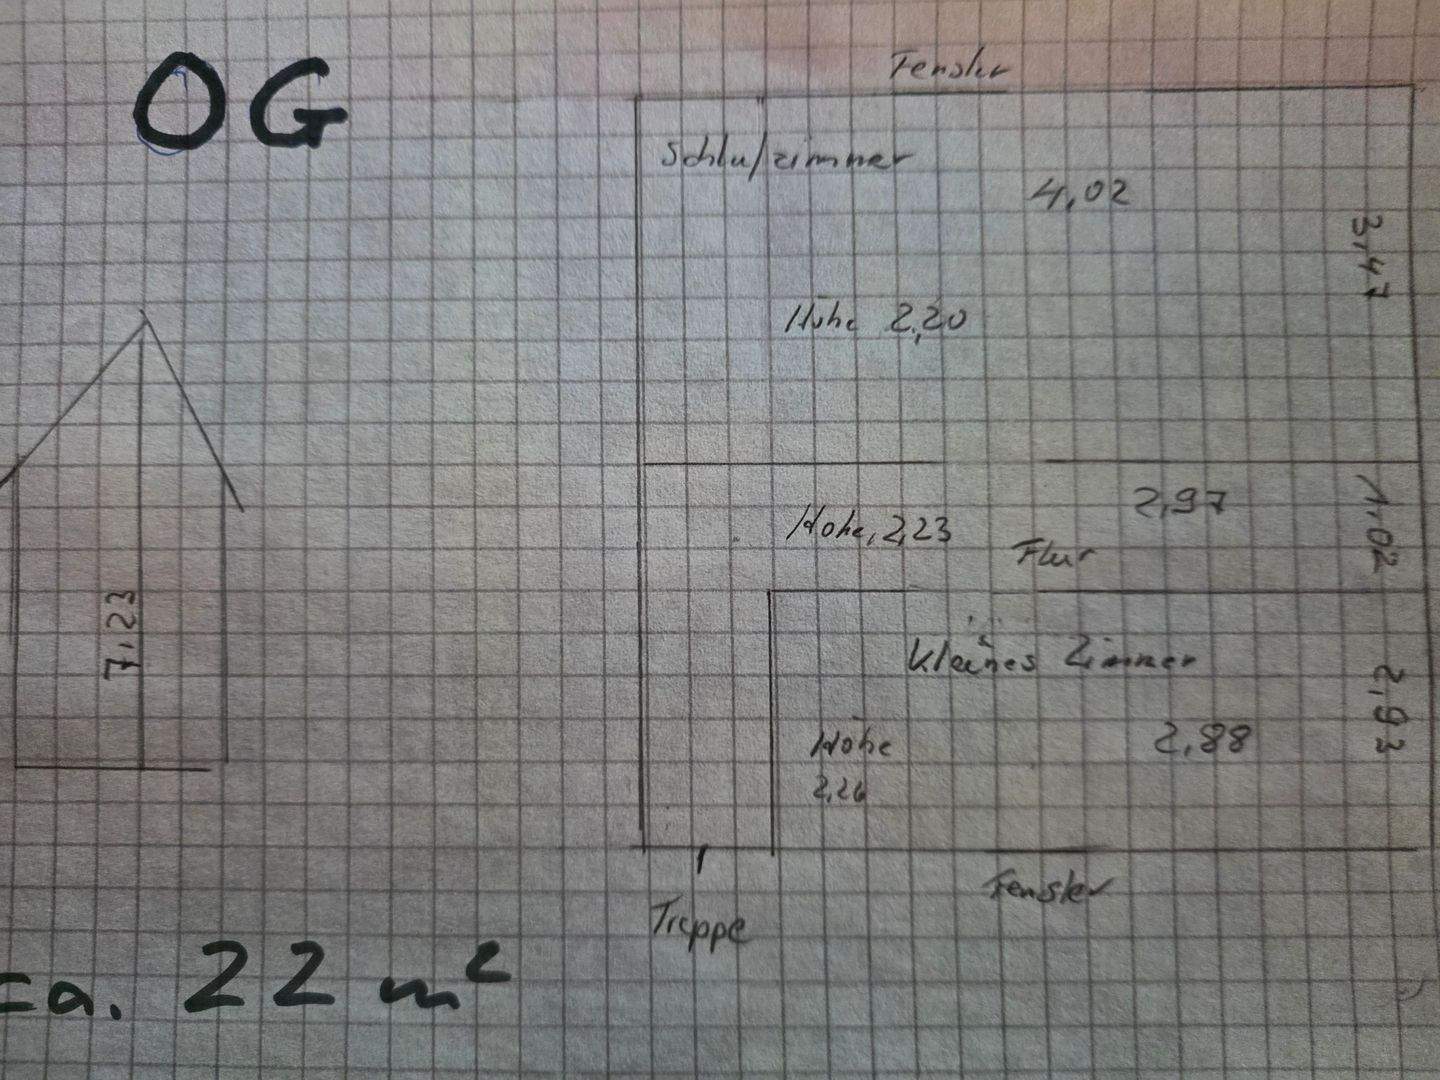 OG
Fenster
Schlafzimmer
4,02
3,47
Höhe 2,20
2,97
1,02
Höhe, 2,23
Flur
7,23
Kleines Zimmer
2,93
2,88
Höhe
2,26
Fenster
Treppe
ca. 22 m²